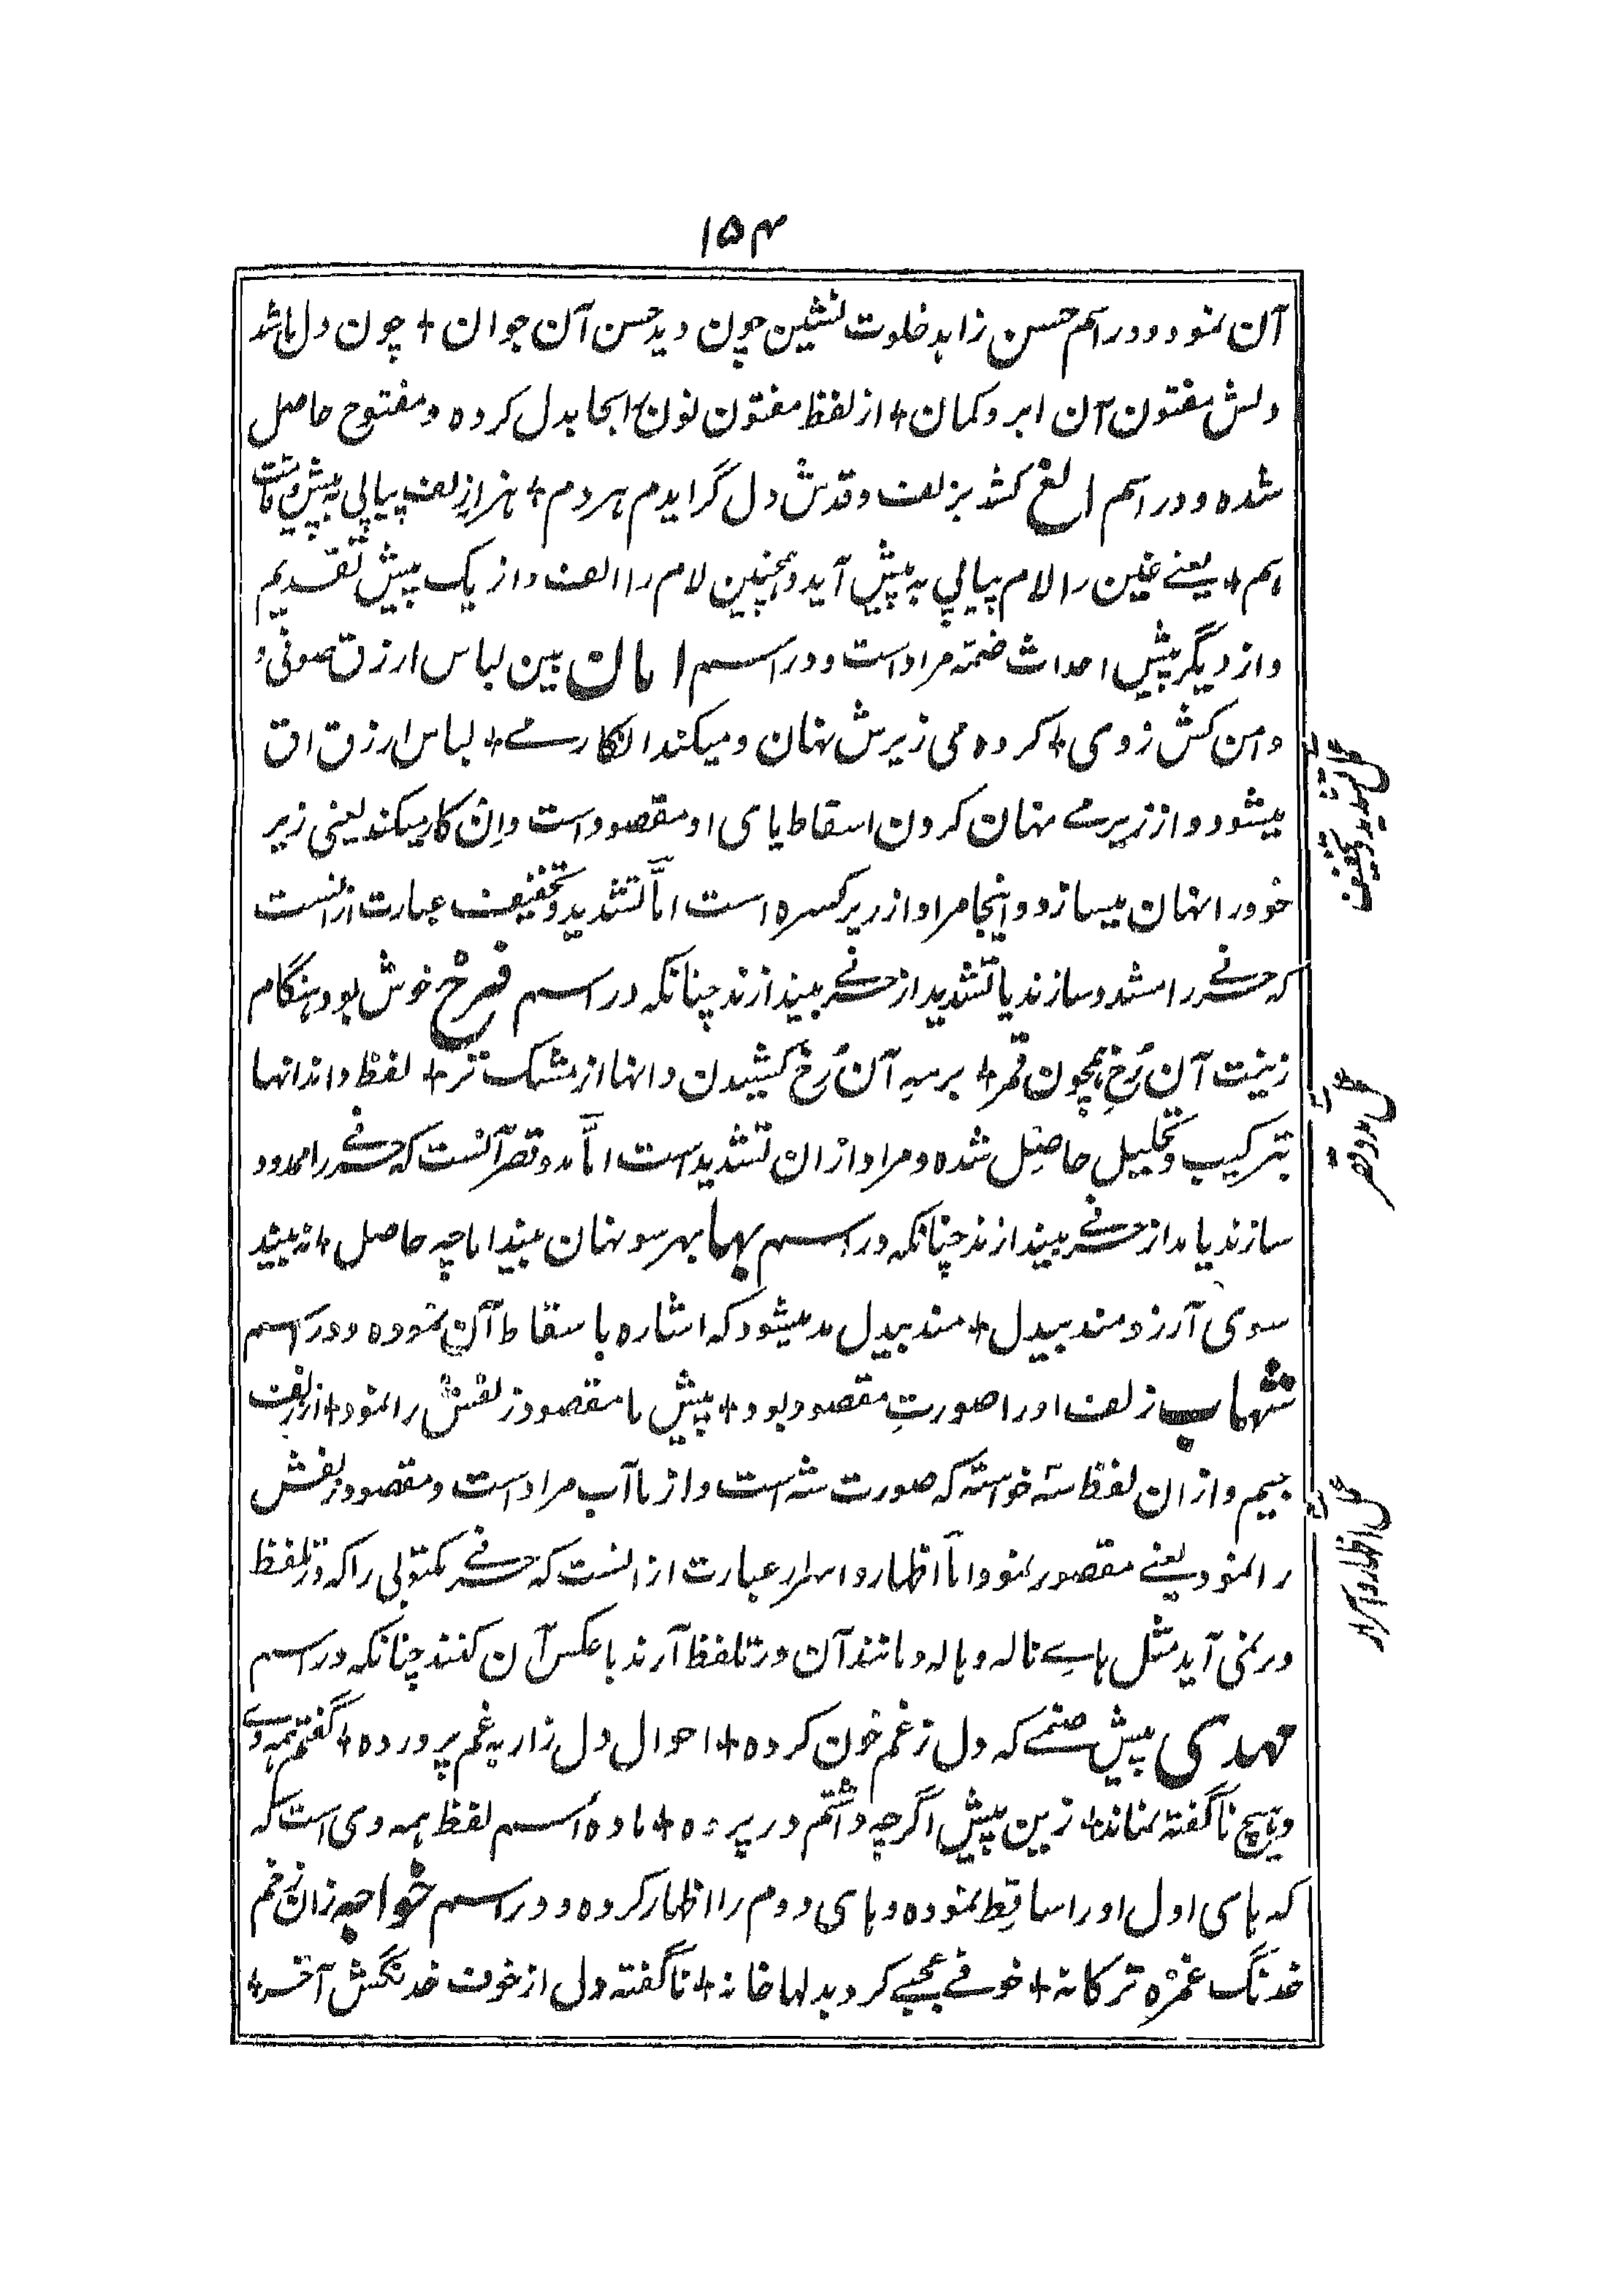 ۱۵۴
آن نمود و در اسم حسن زاہد خلوت نشین چون دید حسن آن جوان + چون دل ما شد
دلش مفتون آن ابرو کمان + از لفظ مفتون نون ابحا بدل کرده و مفتوح حاصل
شده و در اسم الغ کشد بزلف و قدش دل گرایدم ہردم + ہزار زلف پیاپی بہ پیش
ہم + یعنے غین را لام پیاپی بہ پیش آید و ہمچنین لام را الف و از یک پیش تقدیم
و از دیگر پیش احداث ضمہ مراد است و در اسم امان بین لباس ارزق صوفی و
دامن کش زوی + کرده می زیرش نہان و میکند انکار مے + لباس ارزق اق
میشود و از زیر مے نہان کردن اسقاط یای او مقصود است و ان کار میکند یعنی زیر
خود را نہان میسازد و اینجا مراد از زیر کسره است امّا تشدید و تخفیف عبارت ازانست
کہ حرفے را مشدد سازند یا تشدید از حرفے بیندازند چنانکہ در اسم فرخ خوش بود ہنگام
زینت آن رُخِ ہمچون قمر + بر سر آن رُخ کشیدن دانہا از مشک تر + لفظ داندانہا
بترکیب و تحلیل حاصل شده و مراد ازان تشدید است امّا مد و قصر آنست کہ حرفے را ممدود
سازند یا مد از حرفے بیندازند چنانکہ در اسم بہما بہر سو نہان بیند اما چہ حاصل + نہ بیند
سوی آرزومند بیدل + مند بیدل مد میشود کہ اشاره باسقاط آن نموده و در اسم
شہاب زلف او را صورتِ مقصود بود + پیش ما مقصود زلفش را نمود + از زلف
جیم و ازان لفظ سہ خواستہ کہ صورت شہ است و از ما آب مراد است و مقصود زلفش
را نمود یعنے مقصور نمود امّا اظہار و اسرار عبارت از انست کہ حرفے مکتوبی را کہ در تلفظ
در نمی آید مثل ہاے نالہ و ہالہ و مانند آن در تلفظ آرند یا عکس آن کنند چنانکہ در اسم
مہدی پیش صنمے کہ دل زغم خون کرده + احوال دل زار بہ غم پرورده + گفتم ہمہ وے
و ہیچ ناگفتہ نماند + زین پیش اگرچہ داشتم در پرده + ماده اسم لفظ ہمہ وی است کہ
کہ ہای اول او را ساقط نموده و ہای دوم را اظہار کرده و در اسم خواجہ زان زخم
خدنگ غمزۂ ترکانہ + خوفے عجبے کرد بدلہا خانہ + ناگفتہ دل از خوف خدنگش آخر +
عمل تشدید و تخفیف
عمل مد و قصر
عمل اظہار و اسرار